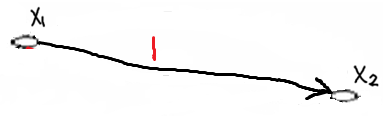 X₁
X₂